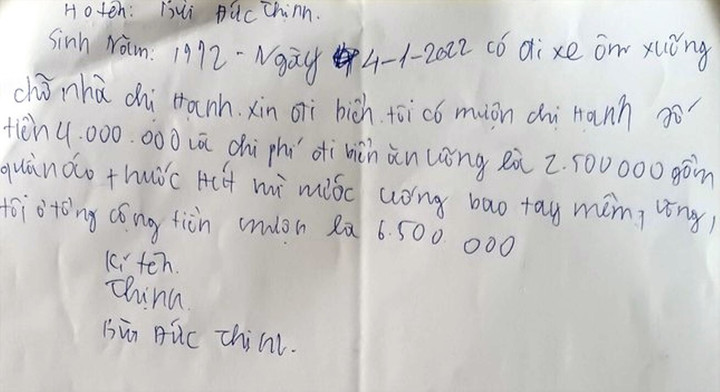 Họ tên: Bùi Đức Thịnh.
Sinh Năm: 1972 - Ngày 4-1-2022 có đi xe ôm xuống
chỗ nhà chị Hạnh. xin đi biển. tôi có mượn chị Hạnh số
tiền 4.000.000 và chi phí đi biển ăn uống là 2.500 000 gồm
quần áo + thuốc Hút mì nước uống bao tay mềm, võng,
tôi ở tổng cộng tiền mượn là 6.500 000
Kí tên.
Thịnh
Bùi Đức Thịnh.